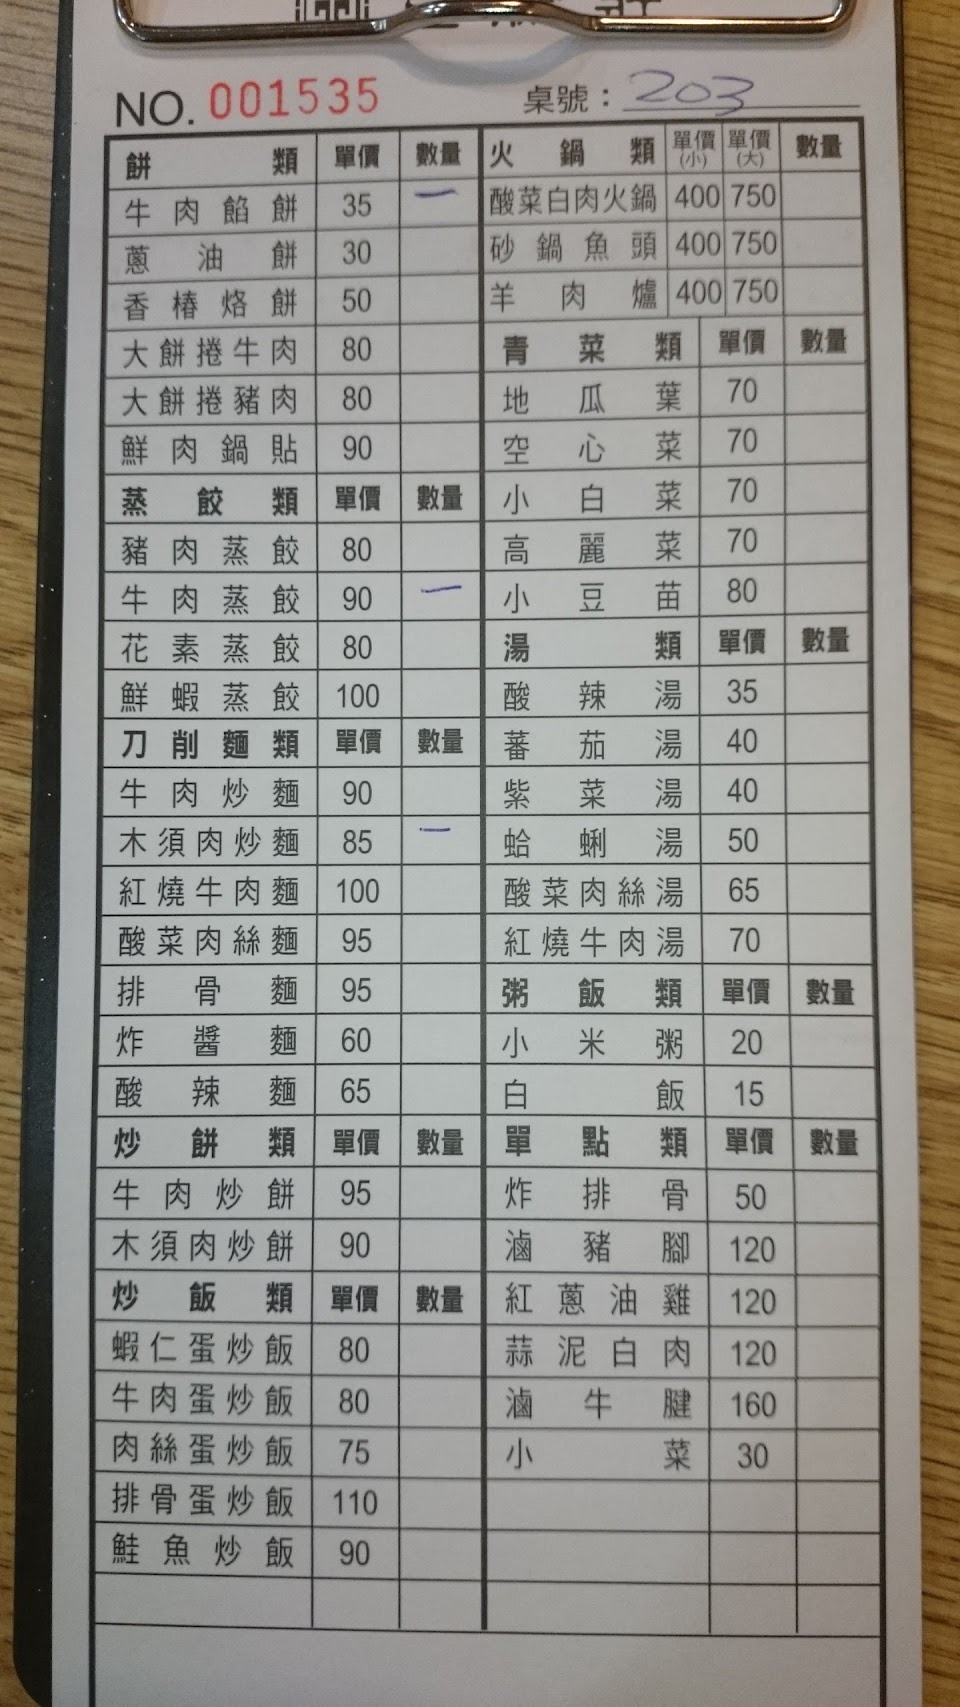 NO. 001535 桌號：203
餅類 單價 數量
牛肉餡餅 35 一
蔥油餅 30
香椿烙餅 50
大餅捲牛肉 80
大餅捲豬肉 80
鮮肉鍋貼 90
蒸餃類 單價 數量
豬肉蒸餃 80
牛肉蒸餃 90 一
花素蒸餃 80
鮮蝦蒸餃 100
刀削麵類 單價 數量
牛肉炒麵 90
木須肉炒麵 85 一
紅燒牛肉麵 100
酸菜肉絲麵 95
排骨麵 95
炸醬麵 60
酸辣麵 65
炒餅類 單價 數量
牛肉炒餅 95
木須肉炒餅 90
炒飯類 單價 數量
蝦仁蛋炒飯 80
牛肉蛋炒飯 80
肉絲蛋炒飯 75
排骨蛋炒飯 110
鮭魚炒飯 90
火鍋類 單價(小) 單價(大) 數量
酸菜白肉火鍋 400 750
砂鍋魚頭 400 750
羊肉爐 400 750
青菜類 單價 數量
地瓜葉 70
空心菜 70
小白菜 70
高麗菜 70
小豆苗 80
湯類 單價 數量
酸辣湯 35
蕃茄湯 40
紫菜湯 40
蛤蜊湯 50
酸菜肉絲湯 65
紅燒牛肉湯 70
粥飯類 單價 數量
小米粥 20
白飯 15
單點類 單價 數量
炸排骨 50
滷豬腳 120
紅蔥油雞 120
蒜泥白肉 120
滷牛腱 160
小菜 30